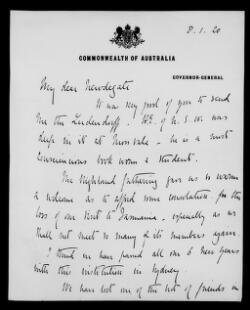 8.1.20
COMMONWEALTH OF AUSTRALIA
GOVERNOR-GENERAL
My dear Newdegate
It was very good of you to send
me the Ludendorff. of N.S.W. was
deep in it at Moss Vale — he is a most
conscientious book worm & student.
The Highland Gathering gave us so warm
a welcome as to afford some consolation for the
loss of our visit to Tasmania, especially as we
shall not meet so many of its members again.
I think we have passed all our 6 New years
with this institution in Sydney.
We have lost one of the best of friends in